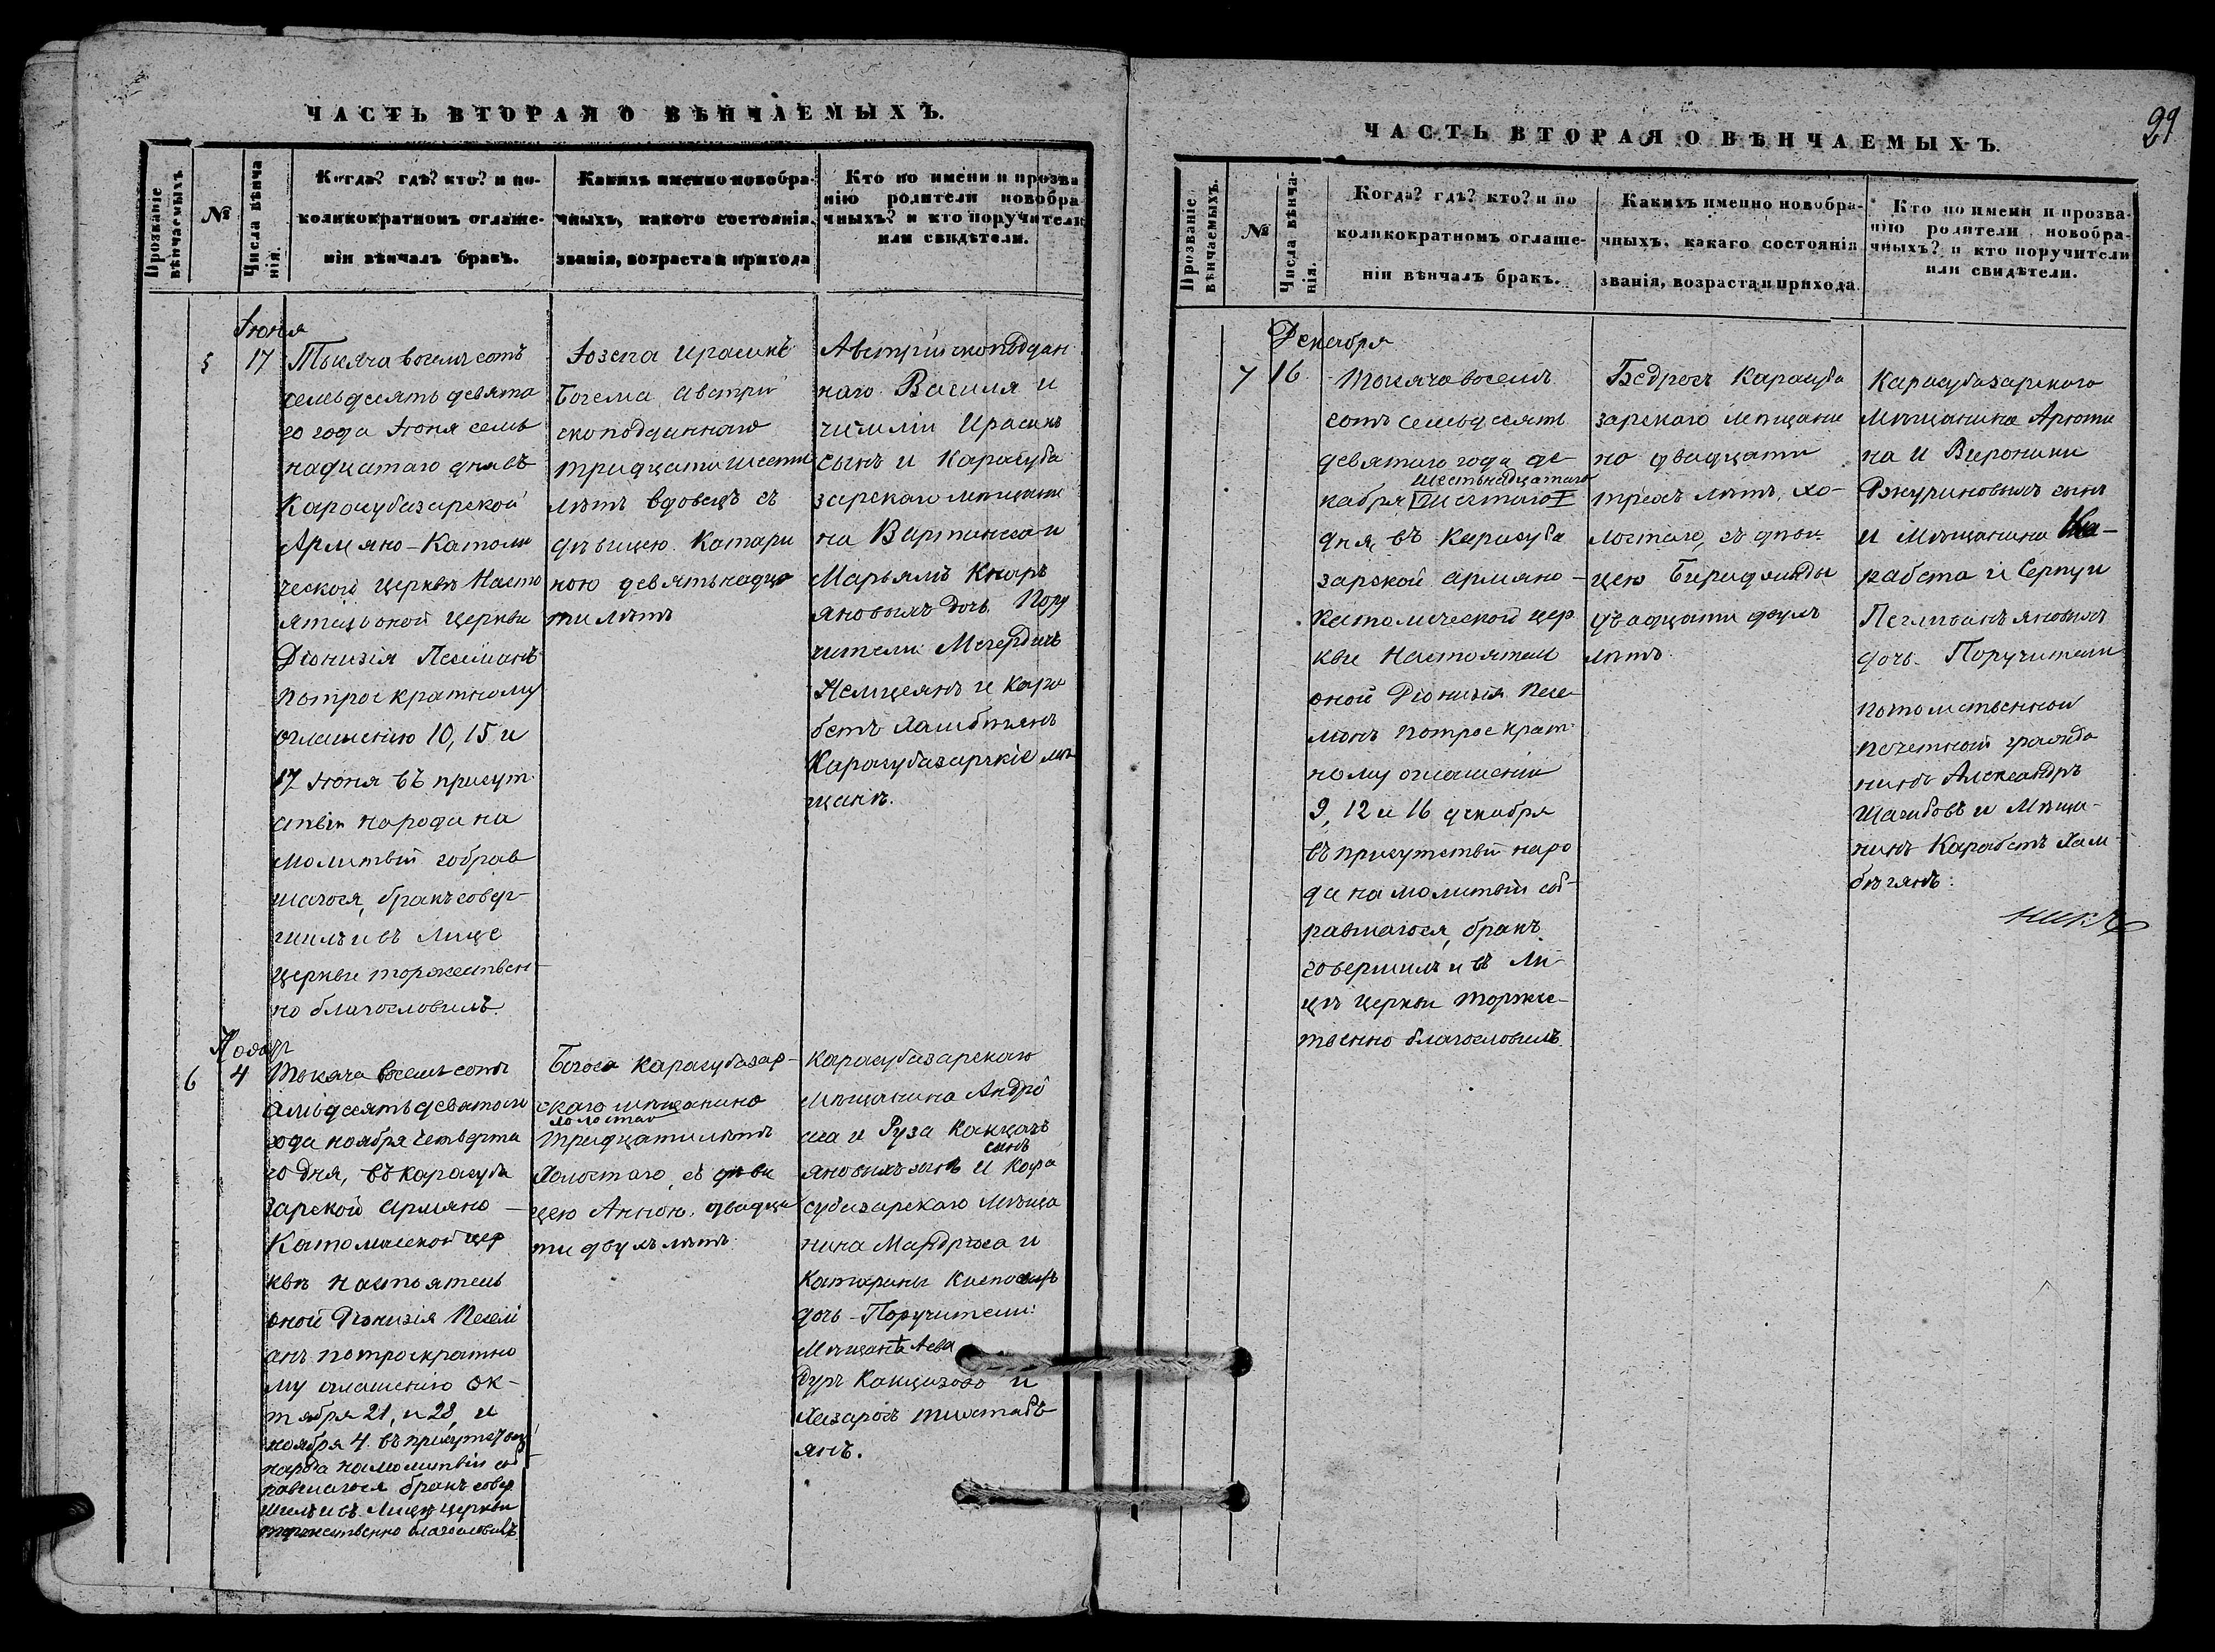 ЧАСТЬ ВТОРАЯ О ВѢНЧАЕМЫХЪ.
Прозваніе вѣнчаемыхъ.
№
Числа вѣнчанія.
Когда? гдѣ? кто? и по-
коликократномъ оглаше-
ніи вѣнчалъ бракъ.
Какихъ именно новобра-
чныхъ, какого состоянія.
званія, возраста и прихода
Кто по имени и прозва
нію родители новобра
чныхъ? и кто поручители
или свидѣтели.
Іюня
5
17
Тысяча восемь сотъ
семьдесятъ девята
го года Іюня семь
надцатаго дня въ
Карасубазарской
Армяно-Католи
ческой Церквѣ Насто
ятель оной Церкви
Діонизія
потроекратному
оглашенію 10, 15 и
17 Іюня въ присут
ствіи народа на
молитвѣи собрав
шагося, бракъ совер-
шилъ и въ Лице
Церкви торжествен-
но благословилъ.
Іозепа Ирасикъ
Богема Австрій
скоподданнаго
тридцати шести
лѣтъ вдовецъ съ
дѣвицею Катари
ною девятьнадца
ти лѣтъ
Австрійскоподдан
наго Василя и
Ирасикъ
сынъ и Карасуба
зарскаго мѣщани
на Вартанеса и
Марьямъ Кнаръ
яновыхъ дочь. Пору
чители: Мегердичъ
и Кара
бетъ
Карасубазарскіе мѣ
щанѣ.
Ноябр
6
4
Тысяча восемь сотъ
семьдесятъ девятаго
года ноября четверта
го дня, въ карасуба
зарской Армяно-
Католической цер
квѣ настоятель
оной Діонизія
анъ потроекратно
му оглашенію Ок-
тября 21, и 28, и
ноября 4. въ присутствіи
народа на молитвѣи соб-
равшагося бракъ совер
шилъ и въ Лицѣ церкви
торжественно благословилъ
Богоса Карасубазар-
скаго мѣщанина
холостаго
тридцати лѣтъ
Холостаго, съ дѣви
цею Анною, двадца
ти двухъ лѣтъ
Карасубазарскаго
Мѣщанина Андрі
аса и Руза Канцагъ
сынъ
яновыхъ сынъ и Кара
субазарскаго Мѣща
нина Мардроса и
Катарины
дочь - Поручители:
Мѣщанѣ Асва
дуръ и
Хазаросъ
янъ.
ЧАСТЬ ВТОРАЯ О ВѢНЧАЕМЫХЪ.
29
Прозваніе вѣнчаемыхъ.
№
Числа вѣнча-
нія.
Когда? гдѣ? кто? и по
коликократномъ оглаше-
ніи вѣнчалъ бракъ.
Какихъ именно новобра-
чныхъ, какаго состоянія
званія, возраста и прихода.
Кто по имени и прозва-
нію родители новобра-
чныхъ? и кто поручители
или свидѣтели.
Декабря
7
16
Тысяча восемь
сотъ семьдесятъ
девятаго года де-
шестьнадцатаго
кабря шестаго
дня, въ Карасуба
зарской армяно-
католической цер
кви Настоятель
оной Діонизія Песи-
манъ потроекрат-
ному оглашеніи
9, 12 и 16 декабря
въ присутствіи наро
да на молитвѣи соб-
равшагося, бракъ
совершилъ и въ Ли-
цѣ церкви торже-
твенно благословилъ.
Бедросъ Карасуба
зарскаго мѣщани
но двадцати
трехъ лѣтъ, хо-
лостаго, съ дѣви
цею
двадцати двухъ
лѣтъ.
Карасубазарскаго
Мѣщанина Арюти
на и Вероники
сынъ
и Мѣщанина Ка-
рабета и Серпуи
дочь. Поручители
потомственной
почетной гражда
нинъ Александръ
и Мѣща-
нинъ Карабетъ